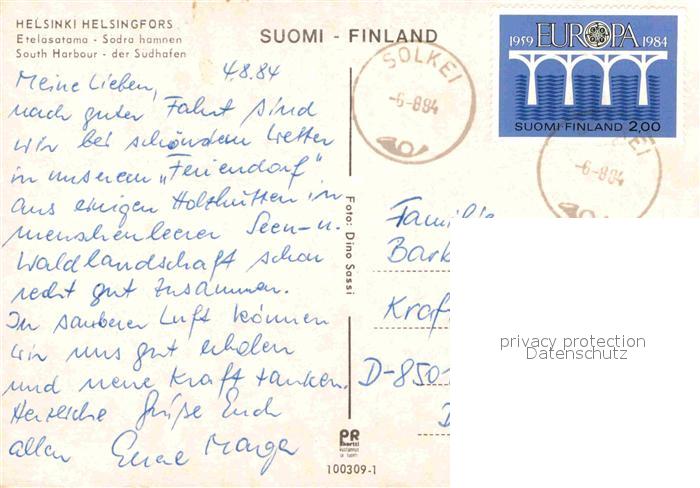 HELSINKI HELSINGFORS
Etelasatama - Sodra hamnen
South Harbour - der Südhafen
SUOMI - FINLAND
4.8.84
Meine Lieben,
nach guter Fahrt sind
wir bei schönstem Wetter
in unserem „Feriendorf"
aus einigen Holzhütten in
menschenleerer Seen- u.
Waldlandschaft schon
recht gut zusammen.
In sauberer Luft können
wir uns gut erholen
und neue Kraft tanken.
Herzliche Grüße Euch
allen Eure
Foto: Dino Sassi
PR
100309-1
SOLKEI
-6-884
1959 EUROPA 1984
SUOMI-FINLAND 2,00
KEI
-6-884
Familie
Bark
Kraf
D-8501
privacy protection
Datenschutz